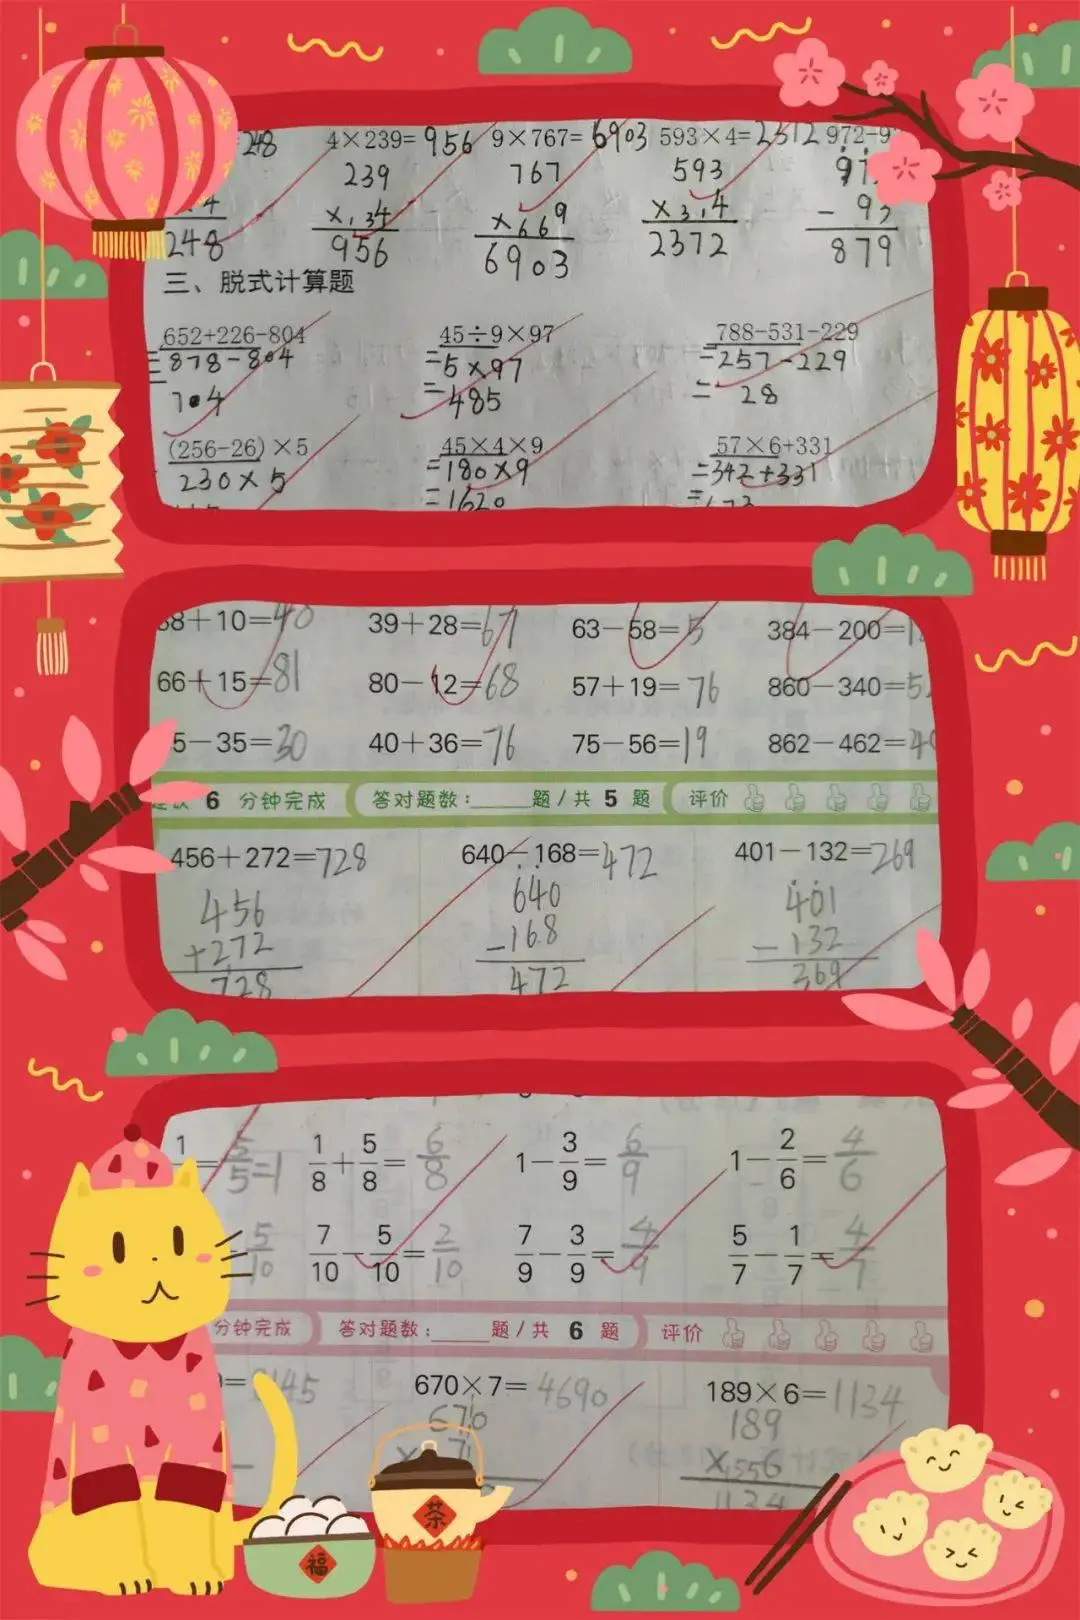 248 4×239=956 9×767=6903 593×4=2312 972-9
239 767 593
4 ×34 ×669 ×3,4 -93
248 956 6903 2372 879
三、脱式计算题
652+226-804 45÷9×97 788-531-229
=878-804 =5×97 =257-229
704 =485 =28
(256-26)×5 45×4×9 57×6+331
230×5 =180×9 =342+331
=1620
8+10=40 39+28=67 63-58=5 384-200=1
66+15=81 80-12=68 57+19=76 860-340=5
5-35=30 40+36=76 75-56=19 862-462=4
6 分钟完成 答对题数:_____题/共 5 题 评价
456+272=728 640-168=472 401-132=269
456 640 401
+272 -168 -132
728 472 369
1/5=5/5=1 1/8+5/8=6/8 1-3/9=6/9 1-2/6=4/6
5/10 7/10-5/10=2/10 7/9-3/9=4/9 5/7-1/7=4/7
分钟完成 答对题数:_____题/共 6 题 评价
145 670×7=4690 189×6=1134
670 189
×7 ×556
1134
茶
福